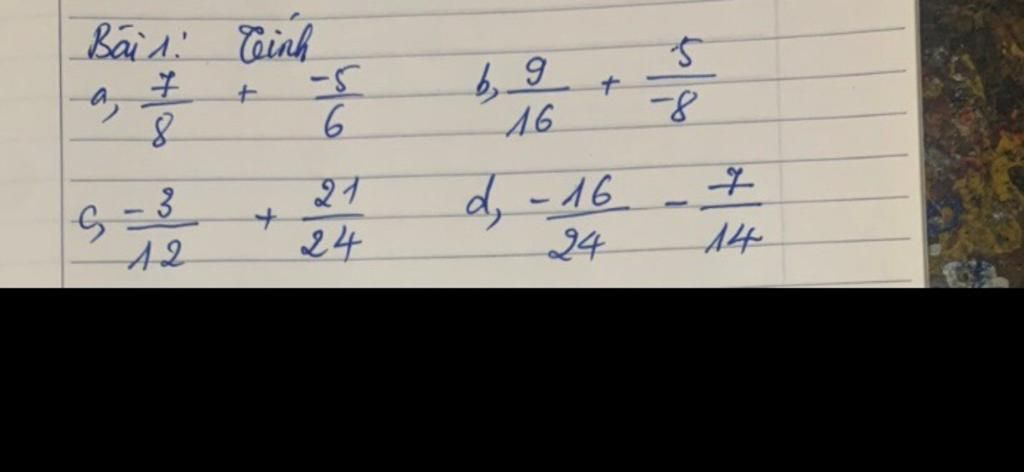 Bài 1: Tính
a, 7/8 + -5/6 b, 9/16 + 5/-8
c, -3/12 + 21/24 d, -16/24 - 7/14